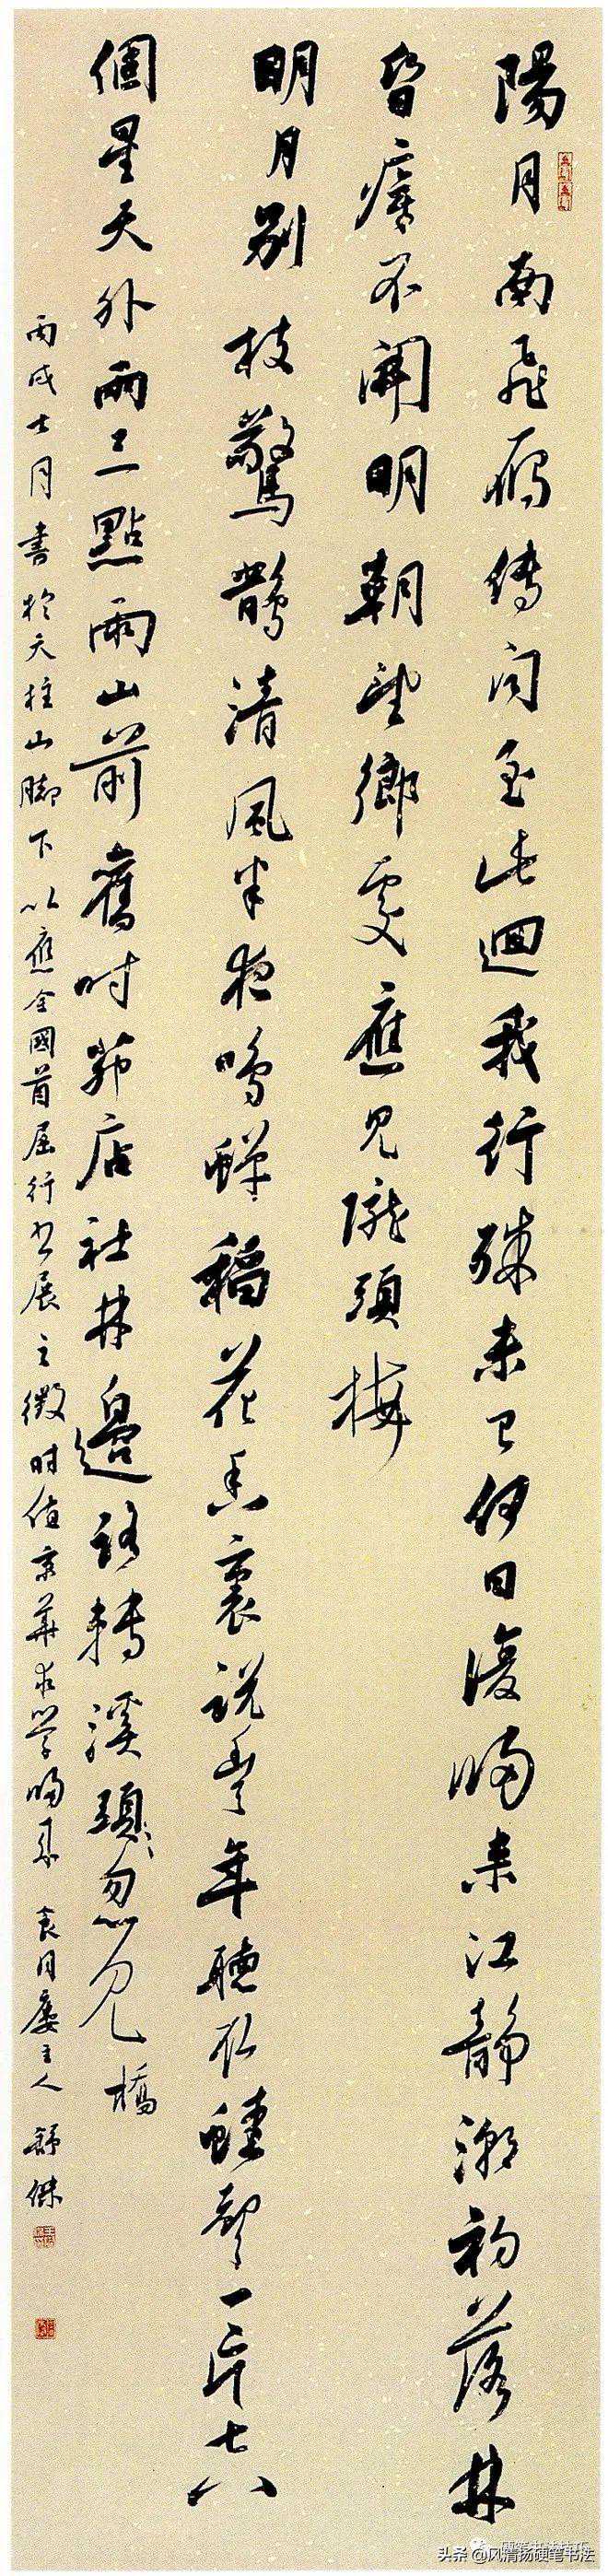 陽月南飛雁傳聞至此迴我行殊未已何日復歸來江靜潮初落林
昏瘴不開明朝望鄉處應見隴頭梅
明月別枝驚鵲清風半夜鳴蟬稻花香裏說豐年聽取蛙聲一片七八
個星天外兩三點雨山前舊時茆店社林邊路轉溪頭忽見橋
丙戌七月書於天柱山腳下以應全國首屆行书展之徵時值京華求學歸來 月廔主人舒傑
头条 @风清扬硬笔书法